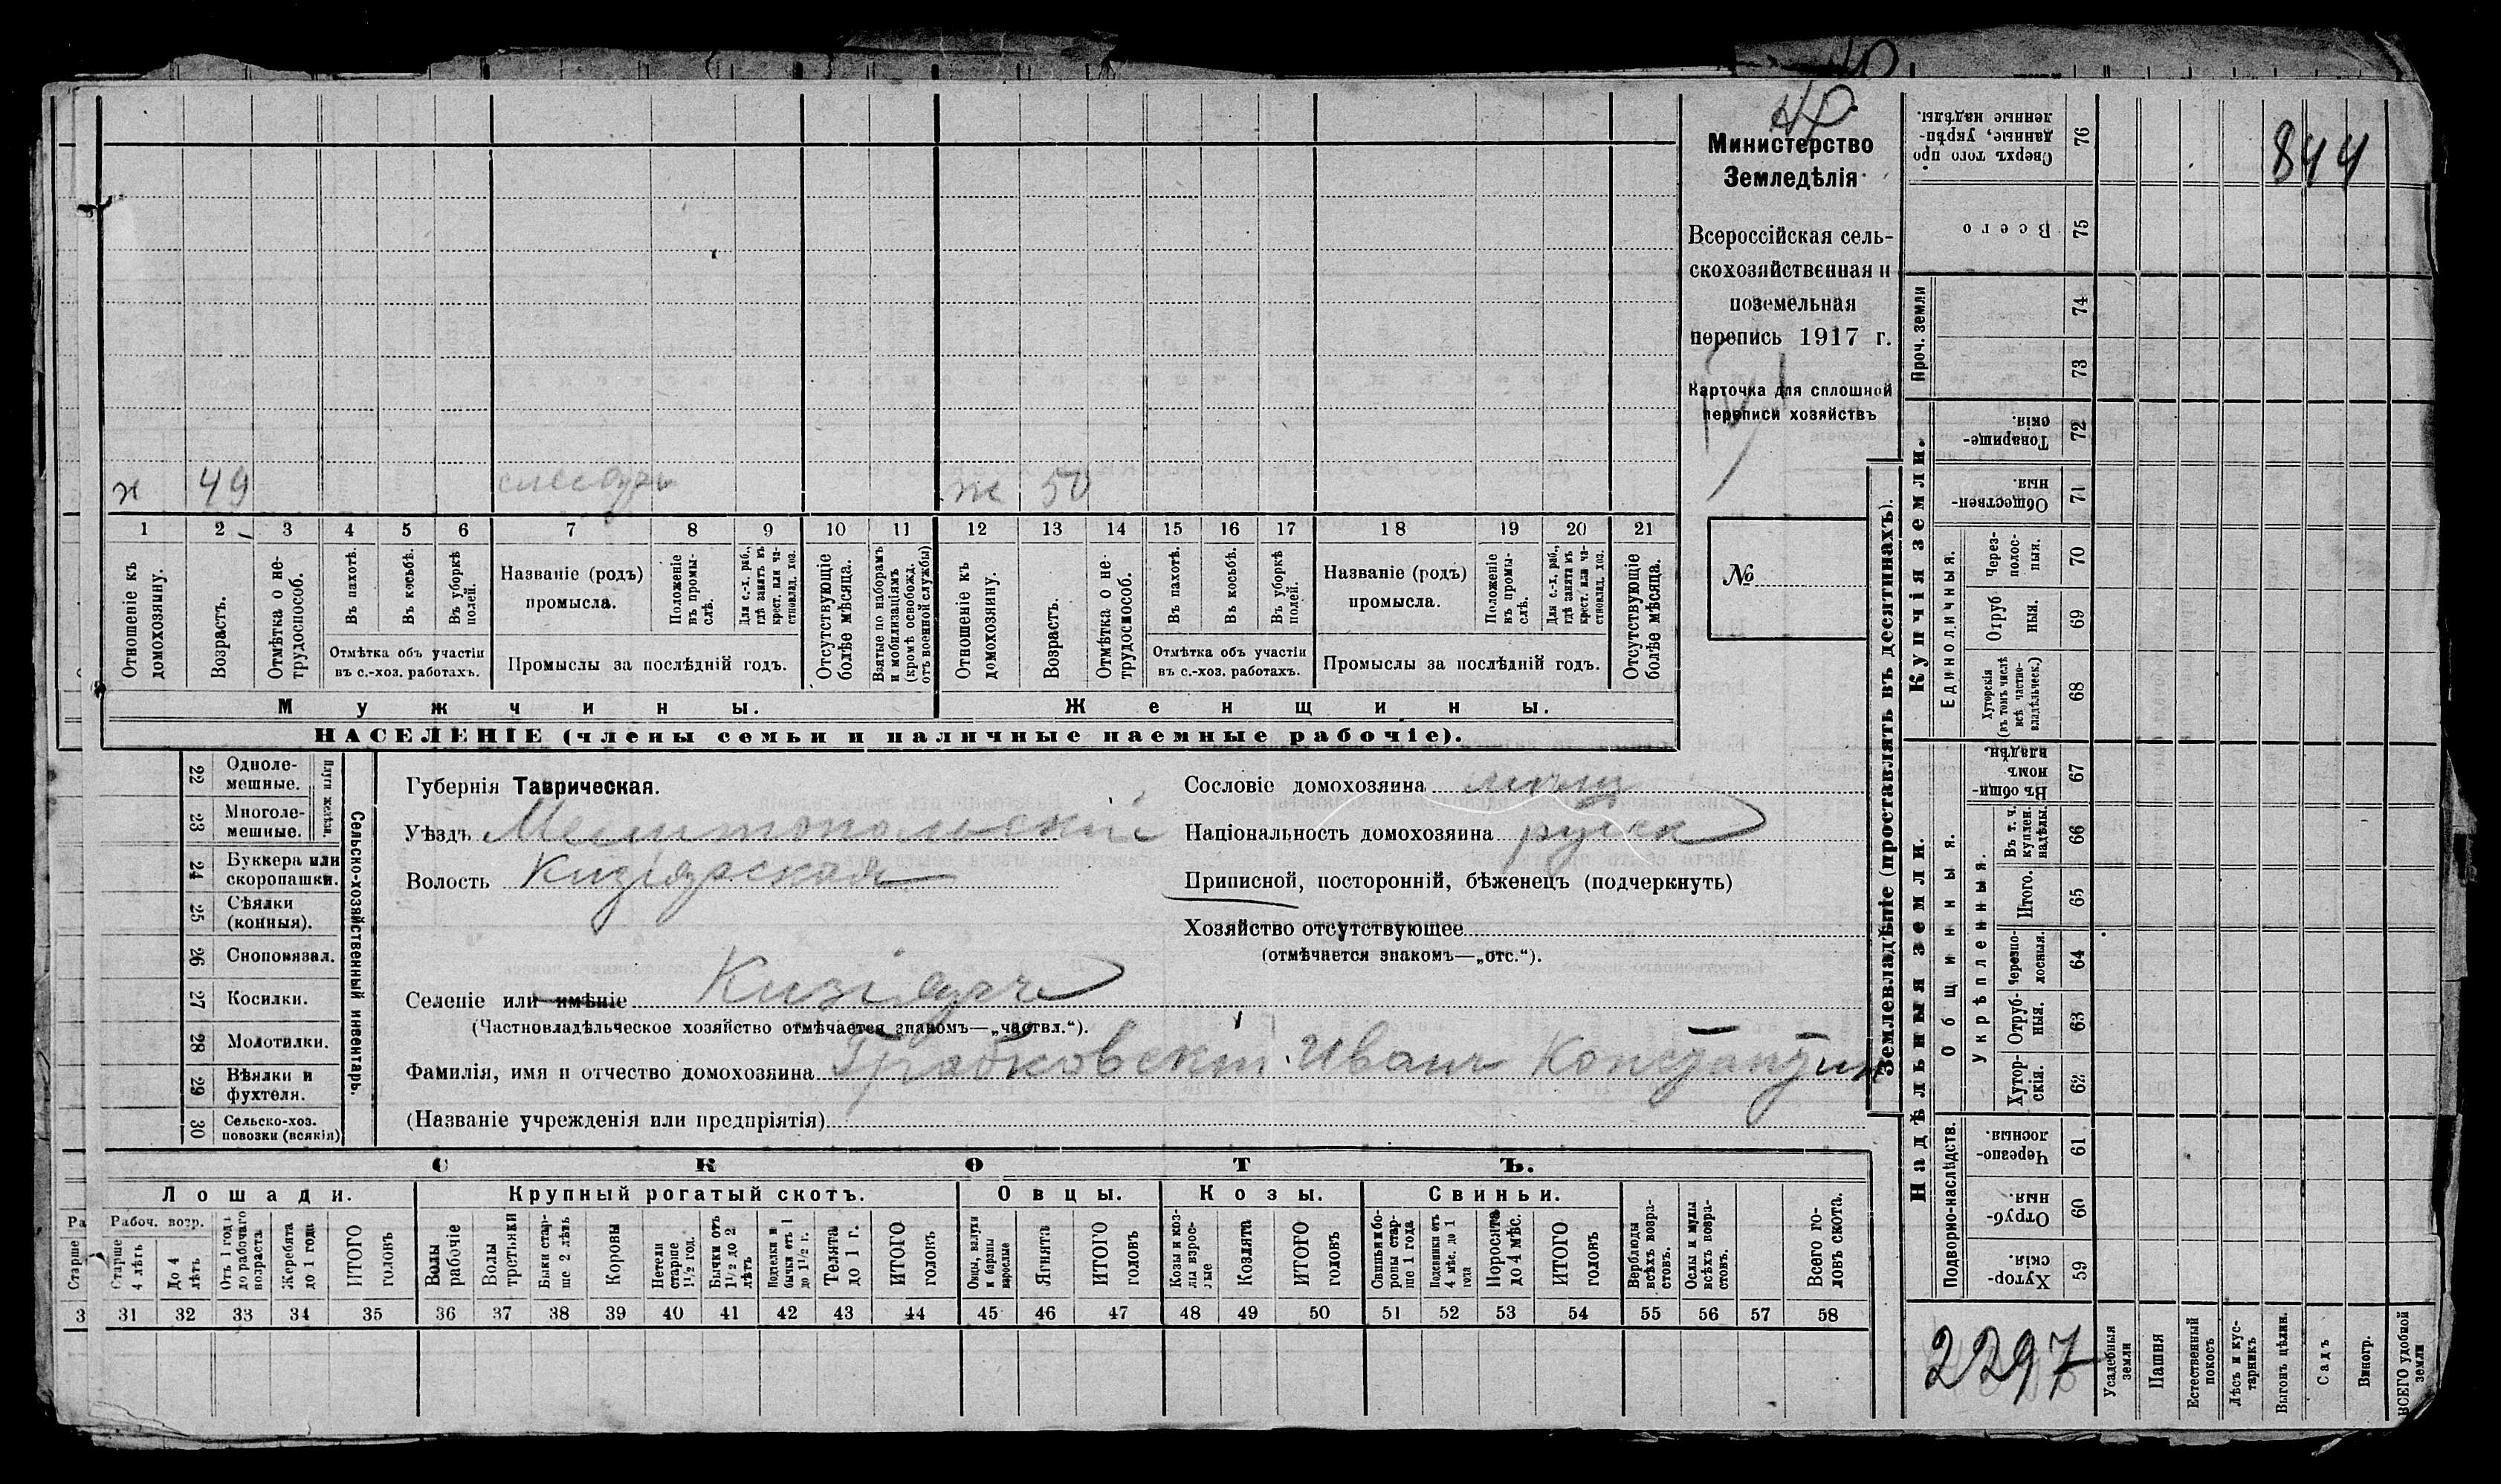 844
Министерство
Земледѣлія
Всероссійская сель-
скохозяйственная и
поземельная
перепись 1917 г.
Карточка для сплошной
переписи хозяйствъ
№
х 49 слесарь ж 50
1 2 3 4 5 6 7 8 9 10 11 12 13 14 15 16 17 18 19 20 21
Отношеніе къ домохозяину.
Возрастъ.
Отмѣтка о не-трудоспособ.
Въ пахотѣ.
Въ косьбѣ.
Въ уборкѣ полей.
Отмѣтка объ участіи
въ с.-хоз. работахъ.
Названіе (родъ)
промысла.
Положеніе въ промы-слѣ.
Для с.-х. раб., гдѣ занятъ въ крест. или ча-стновлад. хоз.
Промыслы за послѣдній годъ.
Отсутствующіе болѣе мѣсяца.
Взятые по наборамъ и мобилизаціямъ (кромѣ освобожд. отъ военной службы)
Отношеніе къ домохозяину.
Возрастъ.
Отмѣтка о не-трудоспособ.
Въ пахотѣ.
Въ косьбѣ.
Въ уборкѣ полей.
Отмѣтка объ участіи
въ с.-хоз. работахъ.
Названіе (родъ)
промысла.
Положеніе въ промы-слѣ.
Для с.-х. раб., гдѣ занята въ крест. или ча-стновлад. хоз.
Промыслы за послѣдній годъ.
Отсутствующіе болѣе мѣсяца.
Мужчины. Женщины.
НАСЕЛЕНІЕ (члены семьи и наличные наемные рабочіе).
22 Одноле-мешные.
23 Многоле-мешные.
Плуги желѣзн.
24 Буккера или скоропашки.
25 Сѣялки (конныя).
26 Сноповязал.
27 Косилки.
28 Молотилки.
29 Вѣялки и фухтеля.
30 Сельско-хоз. повозки (всякія)
Сельско-хозяйственный инвентарь.
Губернія Таврическая.
Уѣздъ Мелитопольскій
Волость Кизіярская
Селеніе или имѣніе Кизіяръ
(Частновладѣльческое хозяйство отмѣчается знакомъ—„частвл.“).
Фамилія, имя и отчество домохозяина Грабковскій Иванъ Константин
(Названіе учрежденія или предпріятія)
Сословіе домохозяина мѣщ
Національность домохозяина русск
Приписной, посторонній, бѣженецъ (подчеркнуть)
Хозяйство отсутствующее
(отмѣчается знакомъ—„отс.“).
СКОТЪ.
Лошади. Крупный рогатый скотъ. Овцы. Козы. Свиньи.
Ра
Старше
3
Рабоч. возр.
Старше 4 лѣтъ
До 4 лѣтъ
Отъ 1 года до рабочаго возраста
Жеребята до 1 года
ИТОГО головъ
Волы рабочіе
Волы третьяки
Быки стар-ше 2 лѣтъ
Коровы
Нетели старше 1½ год.
Бычки отъ 1½ до 2 лѣтъ
Подтелки и бычки отъ 1 до 1½ г.
Телята до 1 г.
ИТОГО головъ
Овцы, валухи и бараны взрослые
Ягнята
ИТОГО головъ
Козы и коз-лы взрос-лые
Козлята
ИТОГО головъ
Свиньи и бо-ровы стар-ше 1 года
Подсвинки отъ 4 мѣс. до 1 года
Поросята до 4 мѣс.
ИТОГО головъ
Верблюды всѣхъ возра-стовъ.
Ослы и мулы всѣхъ возра-стовъ.
Всего го-ловъ скота.
31 32 33 34 35 36 37 38 39 40 41 42 43 44 45 46 47 48 49 50 51 52 53 54 55 56 57 58
Землевладѣніе (проставлять въ десятинахъ).
Надѣльныя земли. Купчія земли. Проч. земли
Сверхъ того про данные, укрѣп-ленные надѣлы. 76
Всего 75
74
73
Товарище-скія. 72
Обществен-ныя. 71
Единоличныя.
Через-полос-ныя. 70
Отруб ныя. 69
Хуторскія (въ томъ числѣ всѣ частно-владѣльческ.) 68
Общинныя.
Въ общин-номъ владѣн. 67
Укрѣпленныя.
Въ т. ч. куплен. надѣлы. 66
Итого. 65
Черезпо-лосныя. 64
Отруб-ныя. 63
Хутор-скія. 62
Подворно-наслѣдств.
Черезпо-лосныя. 61
Отруб-ныя. 60
Хутор-скія. 59
2297
Усадебныя земли
Пашня
Естественный покосъ
Лѣсъ и кус-тарникъ
Выгонъ цѣлин.
Садъ
Виногр.
ВСЕГО удобной земли